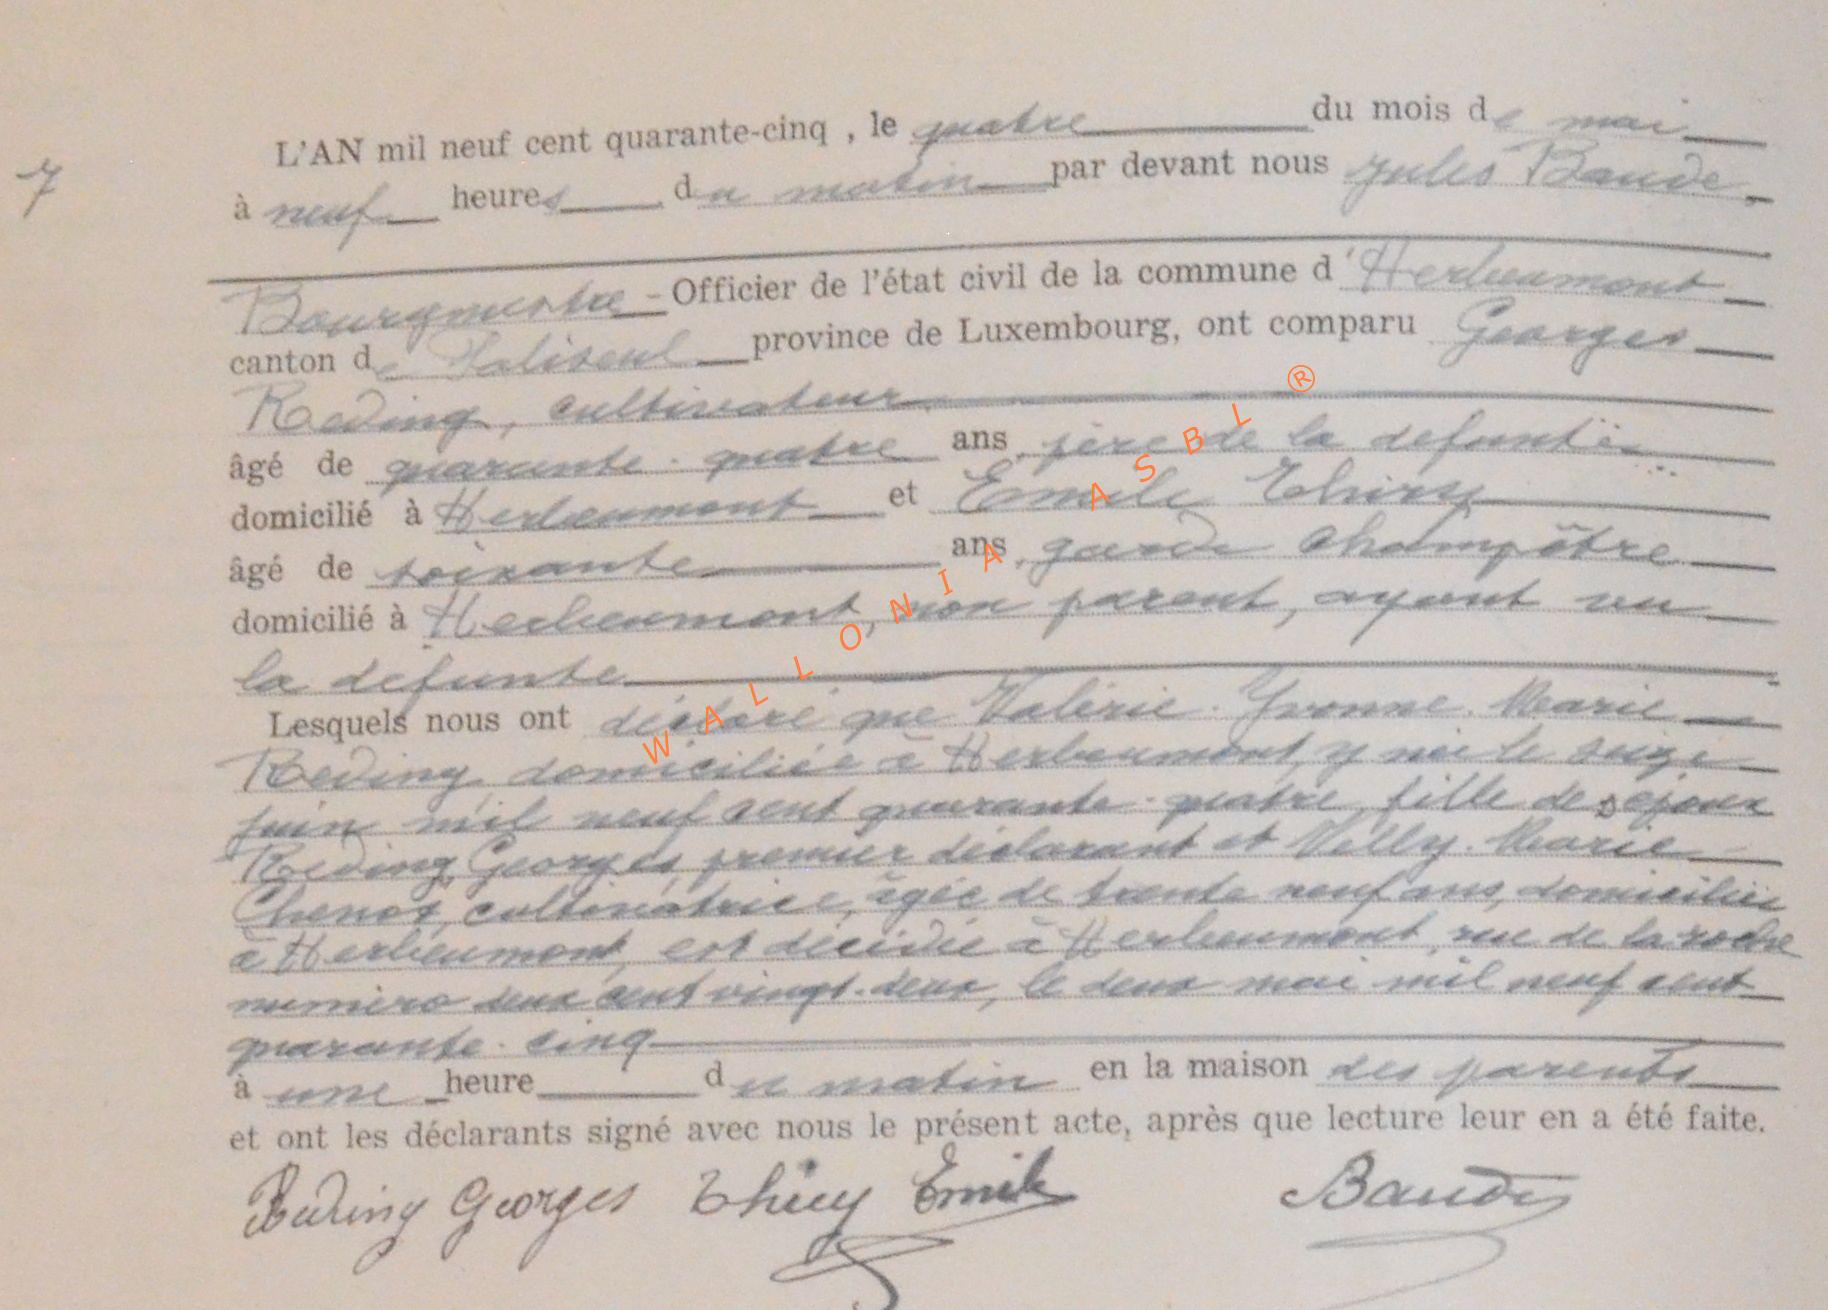 7
L'AN mil neuf cent quarante-cinq , le quatre du mois de mai
à neuf heures du matin par devant nous Jules Baude,
Bourgmestre - Officier de l'état civil de la commune d'Herbeumont
canton de Paliseul province de Luxembourg, ont comparu Georges
Reding, cultivateur
âgé de quarante-quatre ans, père de la défunte
domicilié à Herbeumont et Emile Thiry
âgé de soixante ans, garde champêtre
domicilié à Herbeumont, non parent, ayant vu
la défunte
Lesquels nous ont déclaré que Valérie-Yvonne-Marie
Reding domiciliée à Herbeumont, y née le seize
juin mil neuf cent quarante-quatre, fille des époux
Reding Georges, premier déclarant et Willy-Marie
Chenot, cultivatrice, âgée de trente neuf ans, domiciliée
à Herbeumont, est décédée à Herbeumont, rue de la roche
numéro deux cent vingt-deux, le deux mai mil neuf cent
quarante-cinq
à une heure du matin en la maison des parents
et ont les déclarants signé avec nous le présent acte, après que lecture leur en a été faite.
Reding Georges Thiry Emile Baude
WALLONIA ASBL ®